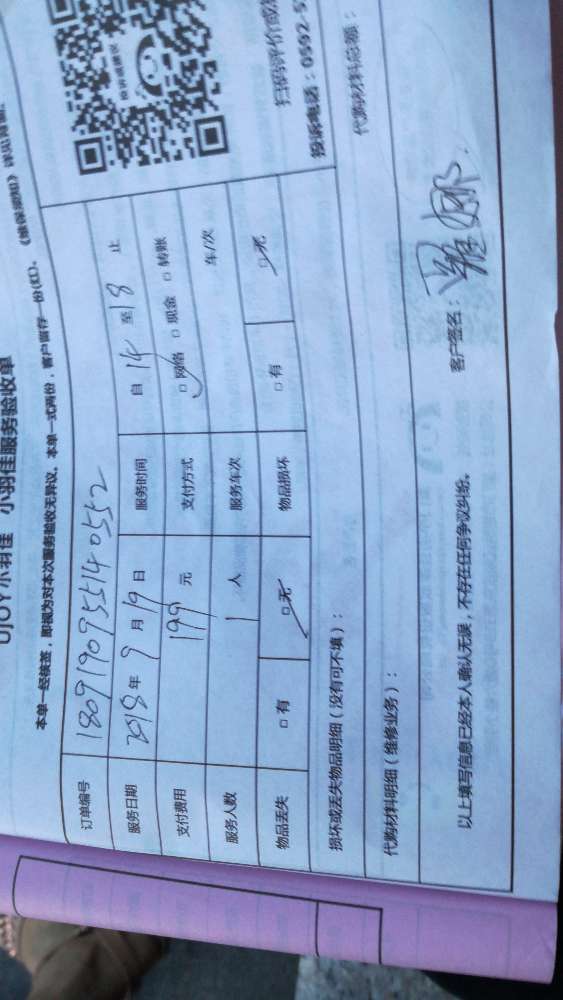 UJOY小羽佳 小羽佳服务验收单
本单一经核签，即视为对本次服务验收无异议。本单一式两份，客户留存一份(红)。《维保须知》详见背面
投诉或建议
订单编号 180919095514 0552
服务日期 2018年9月19日 服务时间 自14至18止
支付费用 199元 支付方式 □网络 □现金 □转账
服务人数 1人 服务车次 车/次
物品丢失 □有 □无 物品损坏 □有 □无
扫码评价或
投诉电话：0592-5
损坏或丢失物品明细（没有可不填）：
代购材料明细（维修业务）： 代购材料总额：
以上填写信息已经本人确认无误，不存在任何争议纠纷。 客户签名：